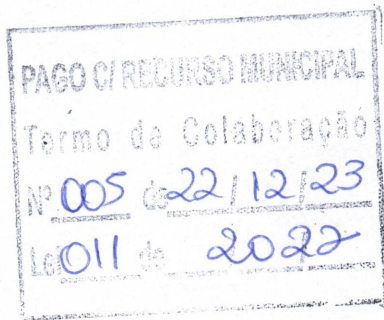 PAGO C/ RECURSO MUNICIPAL
Termo de Colaboração
Nº 005 de 22/12/23
Lei 011 de 2022